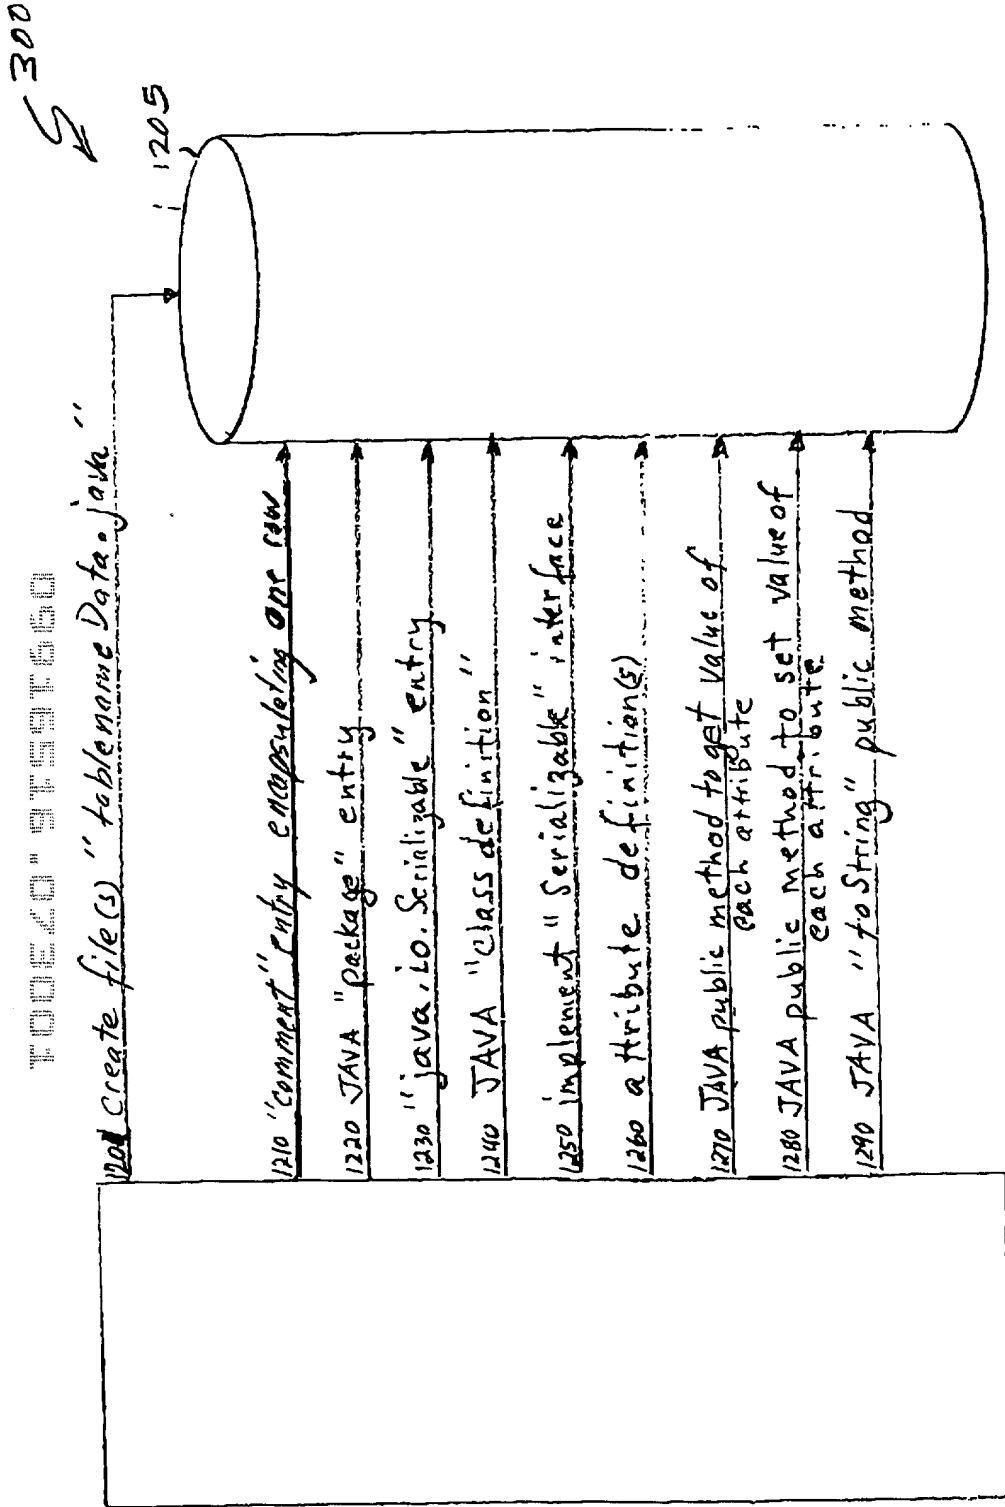 300
1205
Create file(s) "tablenameData.java"
1210 "comment" entry encapsulating one row
1220 JAVA "package" entry
1230 "java.io.Serializable" entry
1240 JAVA "class definition"
1250 implement "Serializable" interface
1260 attribute definition(s)
1270 JAVA public method to get value of
each attribute
1280 JAVA public method to set value of
each attribute
1290 JAVA "toString" public method